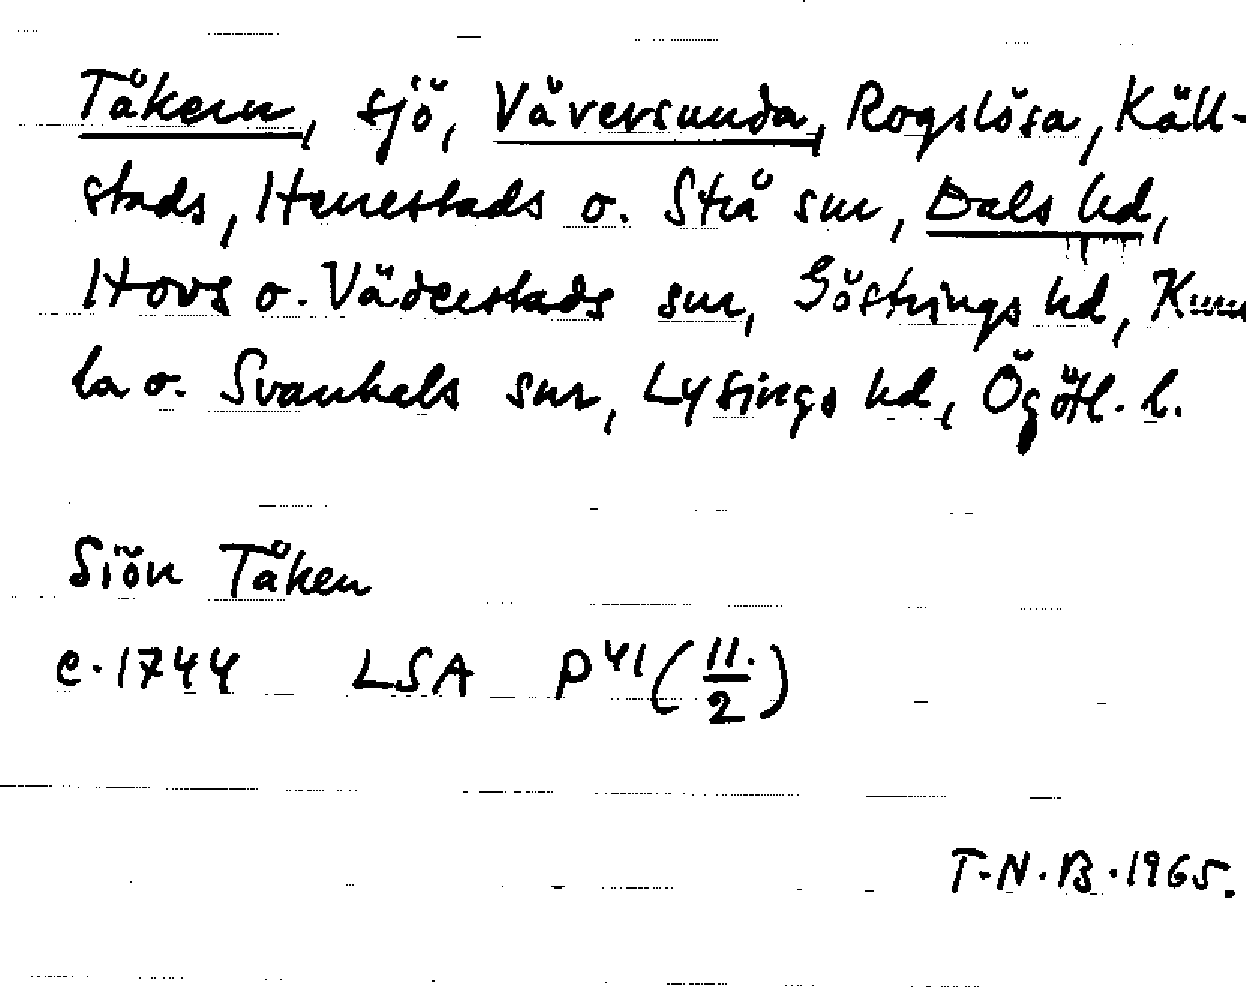 Tåkern, sjö, Väversunda, Rogslösa, Käll-
stads, Herrestads o. Strå snr, Dals hd,
Hovs o. Väderstads snr, Göstrings hd, Kum
la o. Svanhals snr, Lysings hd, Ögötl. l.
Siön Tåken
c. 1744 LSA P 41 (11./2)
T.N.B. 1965.